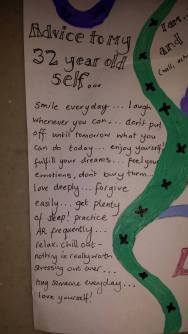 Advice to my
32 year old
self...
Smile everyday... laugh
whenever you can... don't put
off until tomorrow what you
can do today... enjoy yourself
fulfill your dreams... feel your
emotions, don't bury them...
love deeply... forgive
easily... get plenty
of sleep! practice
AR frequently...
relax. chill out-
nothing is really worth
stressing out over...
hug someone everyday...
love yourself!
I am
and